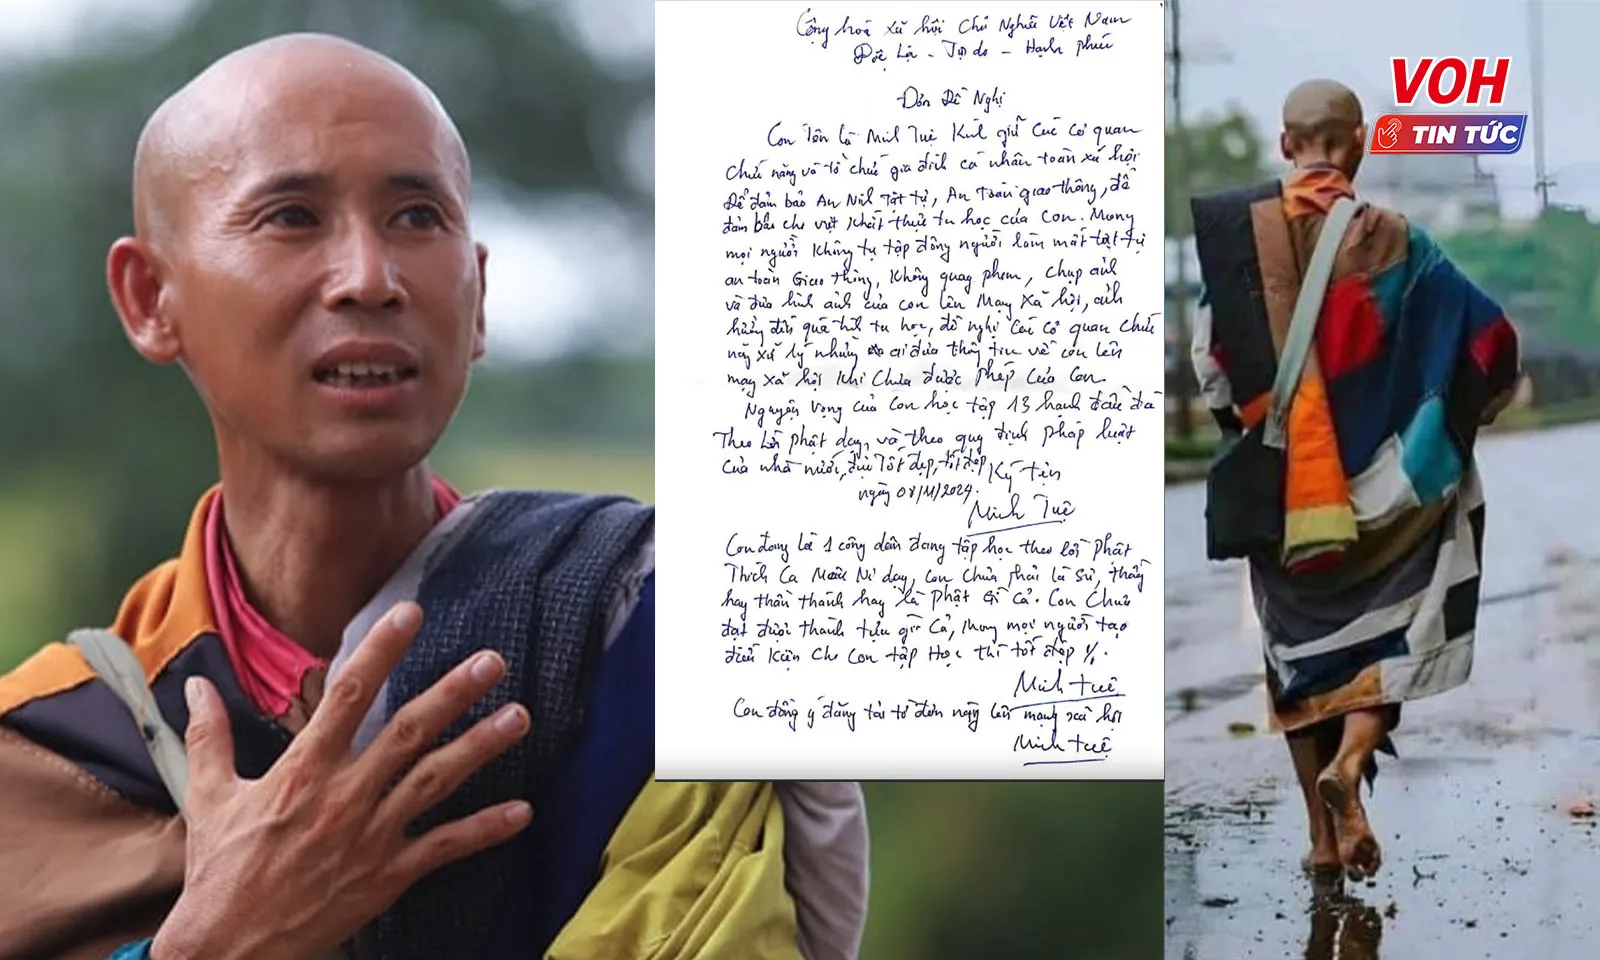 VOH
TIN TỨC
Cộng hoà xã hội Chủ Nghĩa Việt Nam
Độc Lập - Tự do - Hạnh phúc
Đơn Đề Nghị
Con tên là Minh Tuệ Kính gửi các cơ quan
Chức năng và tổ chức gia đình cá nhân toàn xã hội
Để đảm bảo An Ninh Trật tự, An toàn giao thông, để
đảm bảo cho việc khất thực tu học của con. Mong
mọi người không tụ tập đông người làm mất trật tự
an toàn Giao thông, không quay phim, chụp ảnh
và đưa hình ảnh của con lên mạng xã hội, ảnh
hưởng đến quá trình tu học, đề nghị các cơ quan chức
năng xử lý những ai đưa thông tin về con lên
mạng xã hội khi chưa được phép của con.
Nguyện vọng của con học tập 13 hạnh đầu đà
Theo lời phật dạy, và theo quy định pháp luật
của nhà nước, tốt đẹp, tốt đẹp Ký tên
ngày 08/11/2024.
Minh Tuệ
Con đang là 1 công dân đang tập học theo lời Phật
Thích Ca Mâu Ni dạy, con chưa phải là Sư, thầy
hay thần thánh hay là Phật Gì Cả. Con Chưa
đạt được thành tựu gì Cả, Mong mọi người tạo
điều kiện cho con tập Học thì tốt đẹp
Minh Tuệ
Con đồng ý đăng tải tờ đơn này lên mạng xã hội
Minh Tuệ